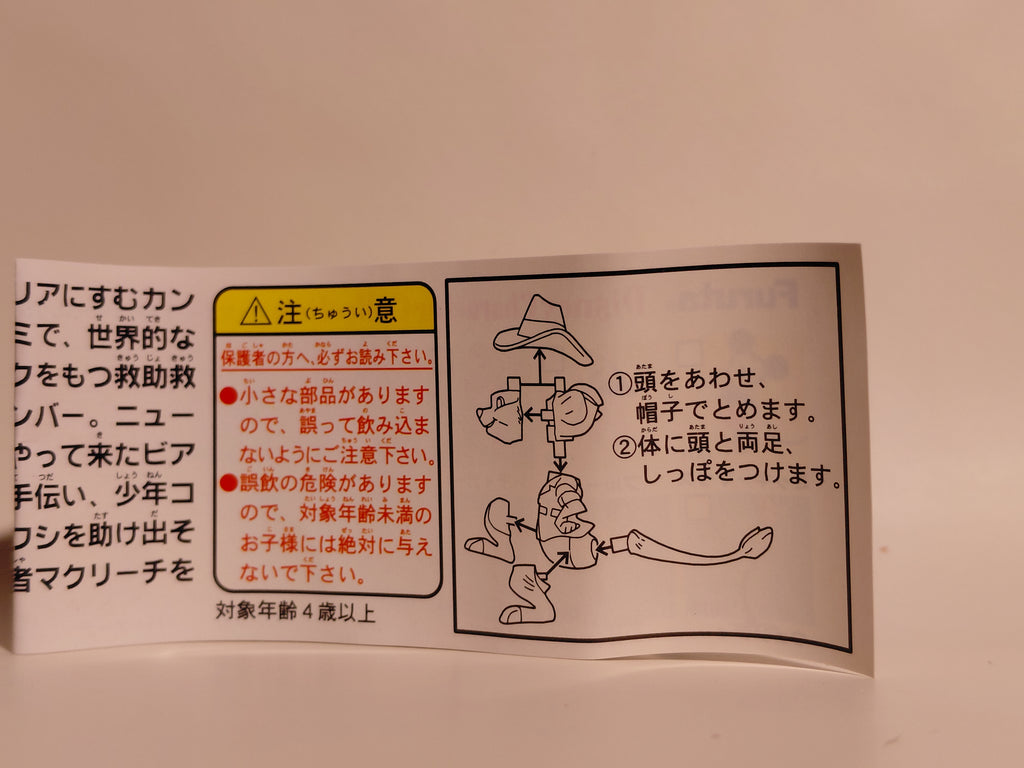 リアにすむカン
ミで、世界的な
クをもつ救助救
ンバー。ニュー
やって来たビア
手伝い、少年コ
ワシを助け出そ
者マクリーチを
注(ちゅうい)意
保護者の方へ、必ずお読み下さい。
●小さな部品があります
ので、誤って飲み込ま
ないようにご注意下さい。
●誤飲の危険があります
ので、対象年齢未満の
お子様には絶対に与え
ないで下さい。
対象年齢4歳以上
①頭をあわせ、
帽子でとめます。
②体に頭と両足、
しっぽをつけます。